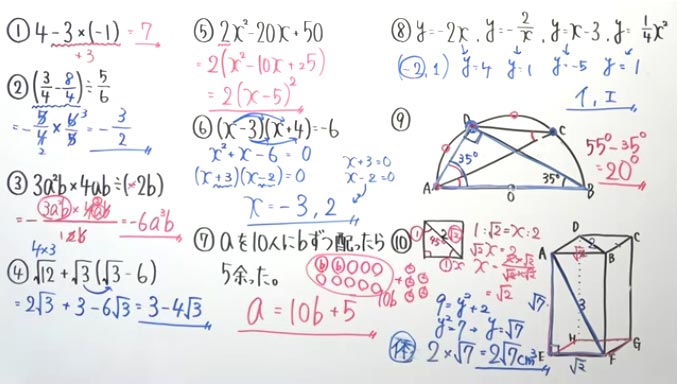 ① 4-3×(-1) = 7
+3
② (3/4-8/4)÷5/6
= -5/4×6/5 = -3/2
2
3
③ 3a²b×4ab÷(-2b)
= -3a²b×4ab/2b = -6a³b
4×3
④ √12+√3(√3-6)
= 2√3+3-6√3 = 3-4√3
⑤ 2x²-20x+50
= 2(x²-10x+25)
= 2(x-5)²
⑥ (x-3)(x+4)=-6
x²+x-6=0
(x+3)(x-2)=0
x+3=0
x-2=0
x=-3,2
⑦ aを10人にbずつ配ったら
5余った。
b b
10b
a=10b+5
⑧ y=-2x, y=-2/x, y=x-3, y=1/4x²
(-2,1) y=4 y=1 y=-5 y=1
イ, エ
⑨
D
C
35°
35°
A
O
B
55°-35°
=20°
⑩
1:√2=x:2
√2x=2
=√2
9=y²+2
y²=7 y=√7
√7
体 2×√7=2√7cm³
D
C
2
A
√2
B
3
H
G
E
F
√2